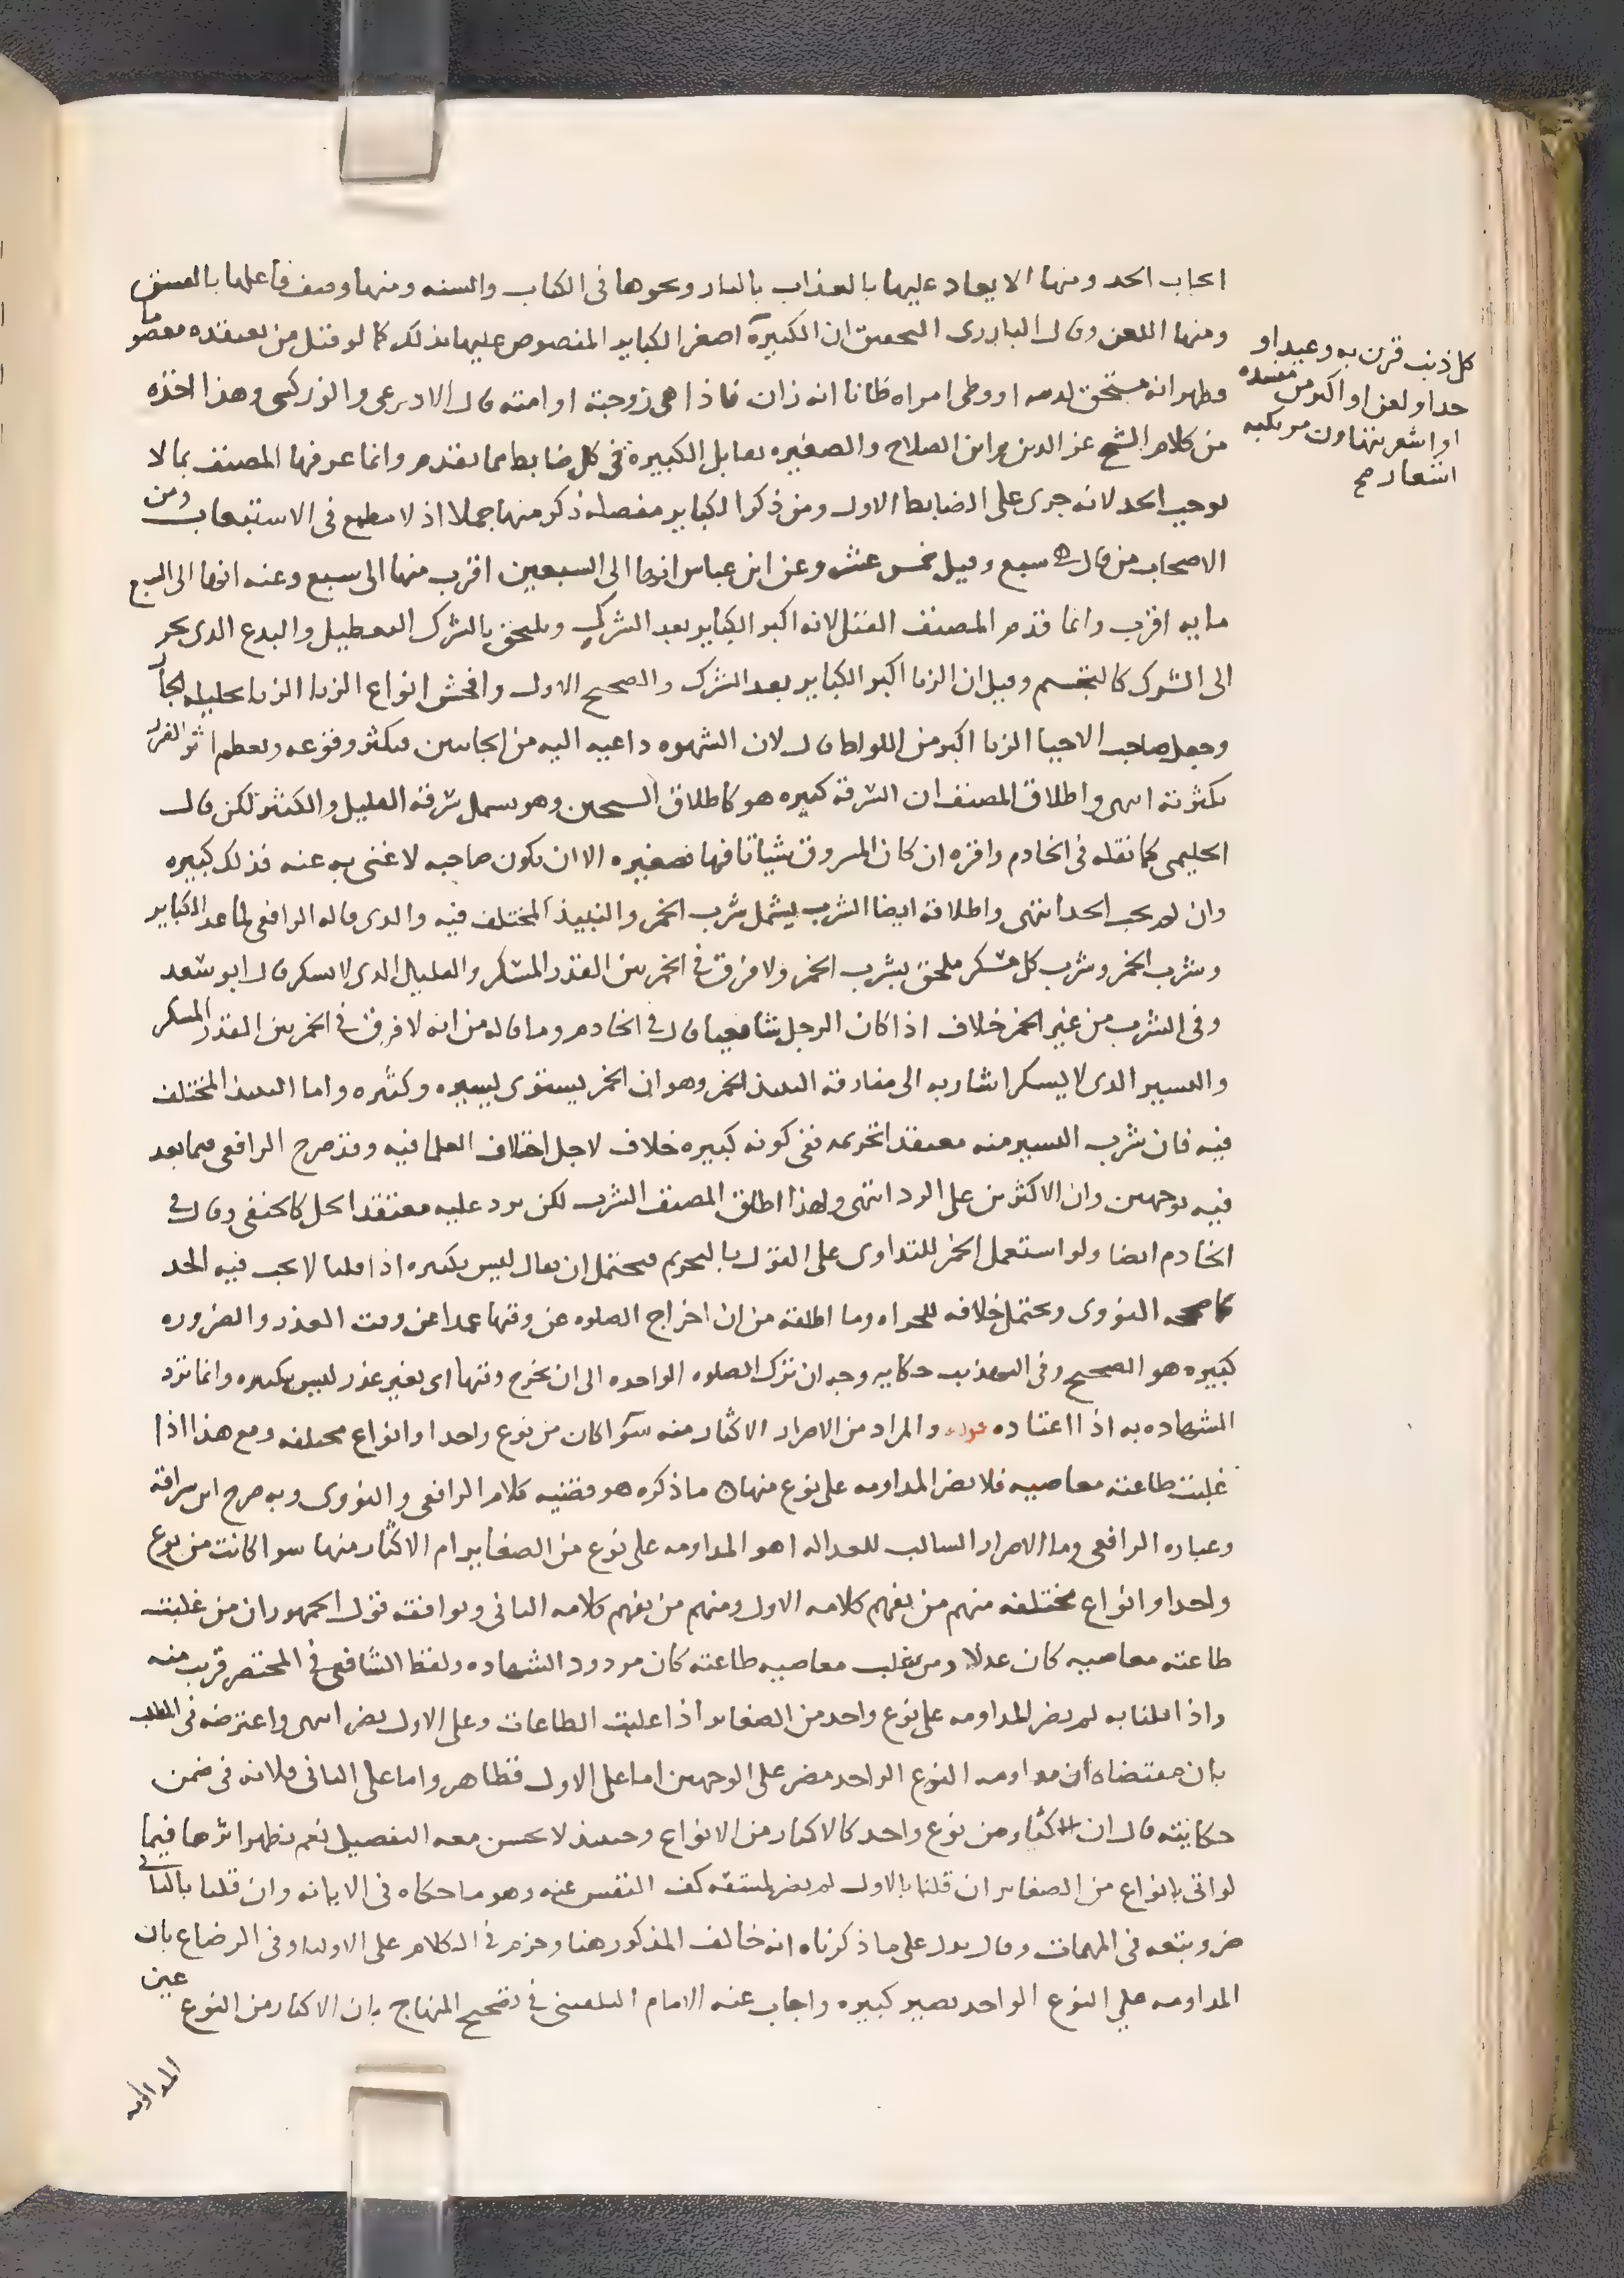 ايجاب الحد ومنها الايعاد عليها بالعذاب بالنار ونحوها في الكتاب والسنه ومنها وصف فاعلها بالفسق
ومنها اللعن وقال البارزي التحقيق ان الكبيرة اصغر الكباير المنصوص عليها بذلك كما لو قتل من يعتقده معصوما
فظهر انه مستحق لدمه او وطى امراه ظانا انه زان فاذا هي زوجته او امته قال الاذرعي والزركشي وهذا اخذه
من كلام الشيخ عز الدين وابن الصلاح والصغيره تقابل الكبيرة في كل ضابط مما تقدم وانما عرفها المصنف بما لا
يوجب الحد لانه جرى على الضابط الاول ومن ذكر الكباير مفصله ذكر منها جملا اذ لا مطمع في الاستيعاب ومن
الاصحاب من قال هي سبع وقيل خمس عشر وعن ابن عباس انها الى السبعين اقرب منها الى سبع وعنه انها الى السبع
مايه اقرب وانما قدم المصنف القتل لانه اكبر الكباير بعد الشرك ويلحق بالشرك التعطيل والبدع الذي يجر
الى الشرك كالتجسم وقيل ان الزنا اكبر الكباير بعد الشرك والصحيح الاول وافحش انواع الزنا الزنا بحليله الجار
وجعل صاحب الاحيا الزنا اكبر من اللواط قال لان الشهوه داعيه اليه من الجانبين فيكثر وقوعه ويعظم اثر الضرر
بكثرته انتهى واطلاق المصنف ان السرقة كبيره هو كاطلاق الشيخين وهو يشمل سرقة القليل والكثير لكن قال
الحليمي كما نقله في الخادم واقره ان كان المسروق شيا تافها فصغيره الا ان يكون صاحبه لا غنى به عنه فذلك كبيره
وان لم يجب الحد انتهى واطلاقه ايضا الشرب يشمل شرب الخمر والنبيذ المختلف فيه والذي قاله الرافعي لما عد الكباير
وشرب الخمر وشرب كل مسكر ملحق بشرب الخمر ولا فرق في الخمر بين القدر المسكر والقليل الذي لا يسكر قال ابو سعد
وفي الشرب من غير الخمر خلاف اذا كان الرجل شافعيا قال في الخادم وما قاله من انه لا فرق في الخمر بين القدر المسكر
واليسير الذي لا يسكر اشار به الى مفارقة النبيذ الخمر وهو ان الخمر يستوى يسيره وكثيره واما النبيذ المختلف
فيه فان شرب اليسير منه معتقدا تحريمه ففي كونه كبيره خلاف لاجل اختلاف العلما فيه وقد صرح الرافعي فيما بعد
فيه بوجهين وان الاكثرين على الرد انتهى ولهذا اطلق المصنف الشرب لكن يرد عليه معتقد الحل كالحنفي وقال في
الخادم ايضا ولو استعمل الخمر للتداوى على القول بالتحريم فيحتمل ان يقال ليس بكبيره اذا قلنا لا يجب فيه الحد
كما صححه النووى ويحتمل خلافه للجراه وما اطلقه من ان اخراج الصلوه عن وقتها عمدا من وقت العذر والضروره
كبيره هو الصحيح وفي التهذيب حكايه وجه ان ترك الصلوه الواحده الى ان يخرج وقتها اى بغير عذر ليس بكبيره وانما ترد
الشهاده به اذا اعتاده قوله والمراد من الاصرار الاكثار منه سوآ كان من نوع واحد او انواع مختلفه ومع هذا اذا
غلبت طاعته معاصيه فلا يضر المداومه على نوع منها ه ما ذكره هو قضيه كلام الرافعي والنووى وبه صرح ابن سراقه
وعباره الرافعي وما الاصرار السالب للعداله اهو المداومه على نوع من الصغاير ام الاكثار منها سوا كانت من نوع
واحد او انواع مختلفه منهم من يفهم كلامه الاول ومنهم من يفهم كلامه الثاني ويوافقه قول الجمهور ان من غلبت
طاعته معاصيه كان عدلا ومن تغلب معاصيه طاعته كان مردود الشهاده ولفظ الشافعي في المختصر قريب منه
واذا قلنا به لم يضر المداومه على نوع واحد من الصغاير اذا غلبت الطاعات وعلى الاول يضر انتهى واعترضه في المطلب
بان مقتضاه ان مداومه النوع الواحد مضر على الوجهين اما على الاول فظاهر واما على الثاني فلانه في ضمن
حكايته قال ان الاكثار من نوع واحد كالاكثار من الانواع وحينئذ لا يحسن معه التفصيل نعم يظهر اثرها فيما
لو اتى بانواع من الصغاير ان قلنا بالاول لم يضر لمشقه كف النفس عنه وهو ما حكاه في الابانه وان قلنا بالثاني
ضر وبتعه في المهمات وقال يدل على ما ذكرناه انه خالف المذكور هنا وجزم في الكلام على الاوليا وفي الرضاع بان
المداومه على النوع الواحد يصير كبيره واجاب عنه الامام البلقيني في تصحيح المنهاج بان الاكثار من النوع عين
المداومه
كل ذنب قرن به وعيد او
حد او لعن او اكبر من مفسده
او اشعر بتهاون مرتكبه
اشعار صح